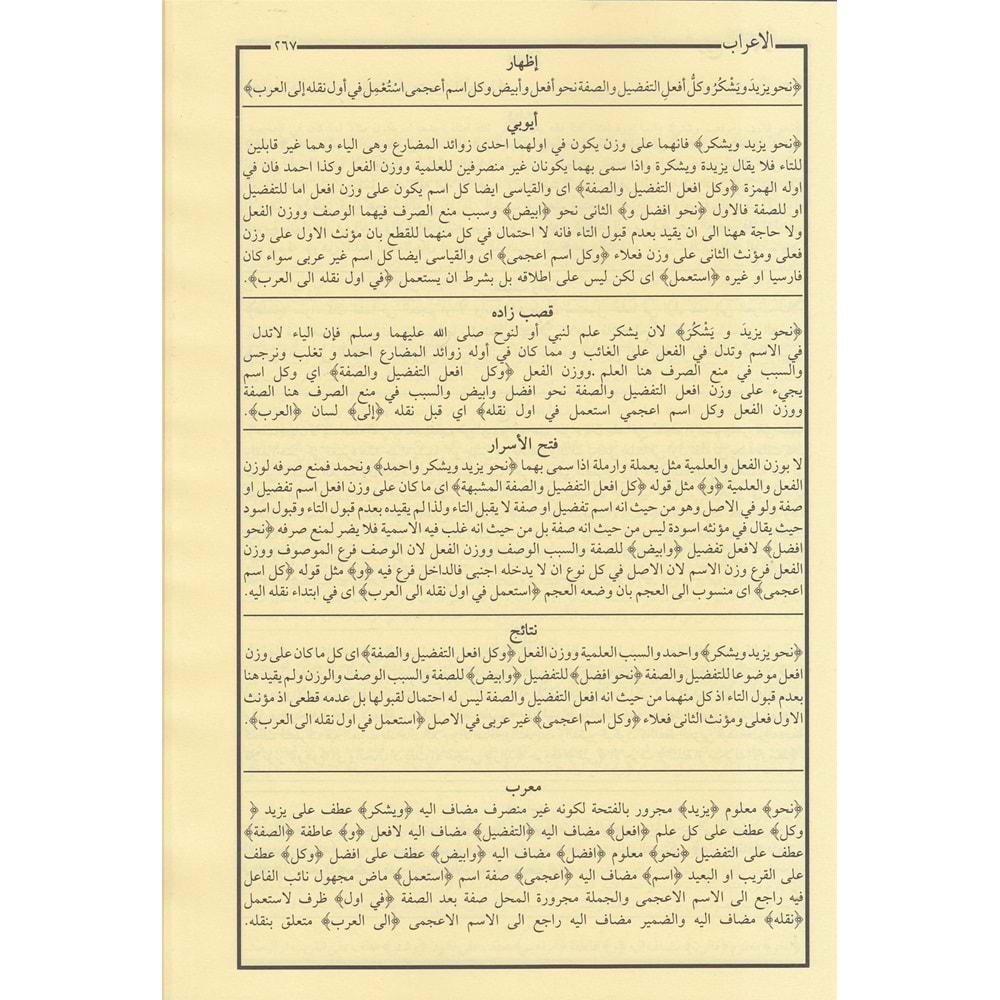 الاعراب ٢٦٧
إظهار
﴿نحو يزيدَ ويَشْكُرُ وكلُّ أفعلِ التفضيل والصفة نحو أفعل وأبيض وكل اسم أعجمى اسْتُعْمِلَ في أول نقله إلى العرب﴾
أيوبي
﴿نحو يزيد ويشكر﴾ فانهما على وزن يكون في اولهما احدى زوائد المضارع وهى الياء وهما غير قابلين
للتاء فلا يقال يزيدة ويشكرة واذا سمى بهما يكونان غير منصرفين للعلمية ووزن الفعل وكذا احمد فان في
اوله الهمزة ﴿وكل افعل التفضيل والصفة﴾ اى والقياسى ايضا كل اسم يكون على وزن افعل اما للتفضيل
او للصفة فالاول ﴿نحو افضل و﴾ الثانى نحو ﴿ابيض﴾ وسبب منع الصرف فيهما الوصف ووزن الفعل
ولا حاجة ههنا الى ان يقيد بعدم قبول التاء فانه لا احتمال في كل منهما للقطع بان مؤنث الاول على وزن
فعلى ومؤنث الثانى على وزن فعلاء ﴿وكل اسم اعجمى﴾ اى والقياسى ايضا كل اسم غير عربى سواء كان
فارسيا او غيره ﴿استعمل﴾ اى لكن ليس على اطلاقه بل بشرط ان يستعمل ﴿في اول نقله الى العرب﴾.
قصب زاده
﴿نحو يزيدَ و يَشْكُرَ﴾ لان يشكر علم لنبي أو لنوح صلى الله عليهما وسلم فإن الياء لاتدل
في الاسم وتدل في الفعل على الغائب و مما كان في أوله زوائد المضارع احمد و تغلب ونرجس
والسبب في منع الصرف هنا العلم .ووزن الفعل ﴿وكل افعل التفضيل والصفة﴾ اي وكل اسم
يجيء على وزن افعل التفضيل والصفة نحو افضل وابيض والسبب في منع الصرف هنا الصفة
ووزن الفعل وكل اسم اعجمي استعمل في اول نقله﴾ اي قبل نقله ﴿إلى﴾ لسان ﴿العرب﴾.
فتح الأسرار
لا بوزن الفعل والعلمية مثل يعملة وارملة اذا سمى بهما ﴿نحو يزيد ويشكر واحمد﴾ ونحمد فمنع صرفه لوزن
الفعل والعلمية ﴿و﴾ مثل قوله ﴿كل افعل التفضيل والصفة المشبهة﴾ اى ما كان على وزن افعل اسم تفضيل او
صفة ولو في الاصل وهو من حيث انه اسم تفضيل او صفة لا يقبل التاء ولذا لم يقيده بعدم قبول التاء وقبول اسود
حيث يقال في مؤنثه اسودة ليس من حيث انه صفة بل من حيث انه غلب فيه الاسمية فلا يضر لمنع صرفه ﴿نحو
افضل﴾ لافعل تفضيل ﴿وابيض﴾ للصفة والسبب الوصف ووزن الفعل لان الوصف فرع الموصوف ووزن
الفعل فرع وزن الاسم لان الاصل في كل نوع ان لا يدخله اجنبى فالداخل فرع فيه ﴿و﴾ مثل قوله ﴿كل اسم
اعجمى﴾ اى منسوب الى العجم بان وضعه العجم ﴿استعمل في اول نقله الى العرب﴾ اى في ابتداء نقله اليه.
نتائج
﴿نحو يزيد ويشكر﴾ واحمد والسبب العلمية ووزن الفعل ﴿وكل افعل التفضيل والصفة﴾ اى كل ما كان على وزن
افعل موضوعا للتفضيل والصفة ﴿نحو افضل﴾ للتفضيل ﴿وابيض﴾ للصفة والسبب الوصف والوزن ولم يقيد هنا
بعدم قبول التاء اذ كل منهما من حيث انه افعل التفضيل والصفة ليس له احتمال لقبولها بل عدمه قطعى اذ مؤنث
الاول فعلى ومؤنث الثانى فعلاء ﴿وكل اسم اعجمى﴾ غير عربى في الاصل ﴿استعمل في اول نقله الى العرب﴾.
معرب
﴿نحو﴾ معلوم ﴿يزيد﴾ مجرور بالفتحة لكونه غير منصرف مضاف اليه ﴿ويشكر﴾ عطف على يزيد ﴿
وكل﴾ عطف على كل علم ﴿افعل﴾ مضاف اليه ﴿التفضيل﴾ مضاف اليه لافعل ﴿و﴾ عاطفة ﴿الصفة﴾
عطف على التفضيل ﴿نحو﴾ معلوم ﴿افضل﴾ مضاف اليه ﴿وابيض﴾ عطف على افضل ﴿وكل﴾ عطف
على القريب او البعيد ﴿اسم﴾ مضاف اليه ﴿اعجمى﴾ صفة اسم ﴿استعمل﴾ ماض مجهول نائب الفاعل
فيه راجع الى الاسم الاعجمى والجملة مجرورة المحل صفة بعد الصفة ﴿في اول﴾ ظرف لاستعمل
﴿نقله﴾ مضاف اليه والضمير مضاف اليه راجع الى الاسم الاعجمى ﴿الى العرب﴾ متعلق بنقله.